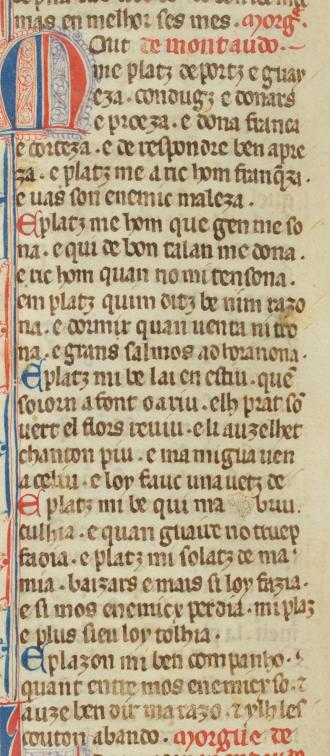 mas en melhor ses mes. morgе.
Out de montaudo.
Mout me platz deportz e guay
eza. condugz e donars
e proeza. e dona franca
e corteza. e de respondre ben apre
za. e platz me a ric hom franqza.
e uas son enemic maleza.
E platz me hom que gen me so
na. e qui de bon talan me dona.
e ric hom quan no mi tensona.
em platz quim ditz be nim razo
na. e dormir quan uenta ni tro
na. e grans salmos ad hora nona.
E platz mi be lai en estiu. que
soiorn a font o a riu. elh prat so
uert el flors reuiu. e li auzelhet
chanton piu. e mamigua uen
a celiu. e loy fauc una uetz de
E platz mi be qui ma briu.
culhia. e quan guaire no truep
fadia. e platz mi solatz de ma
mia. baizars e mais si loy fazia.
e si mos enemicx perdia. mi platz
e plus sieu loy tolhia.
E plazon mi ben companho.
quant entre mos enemicx so. z
auze ben dir ma razo. z ylh les
couton abando. morgue de